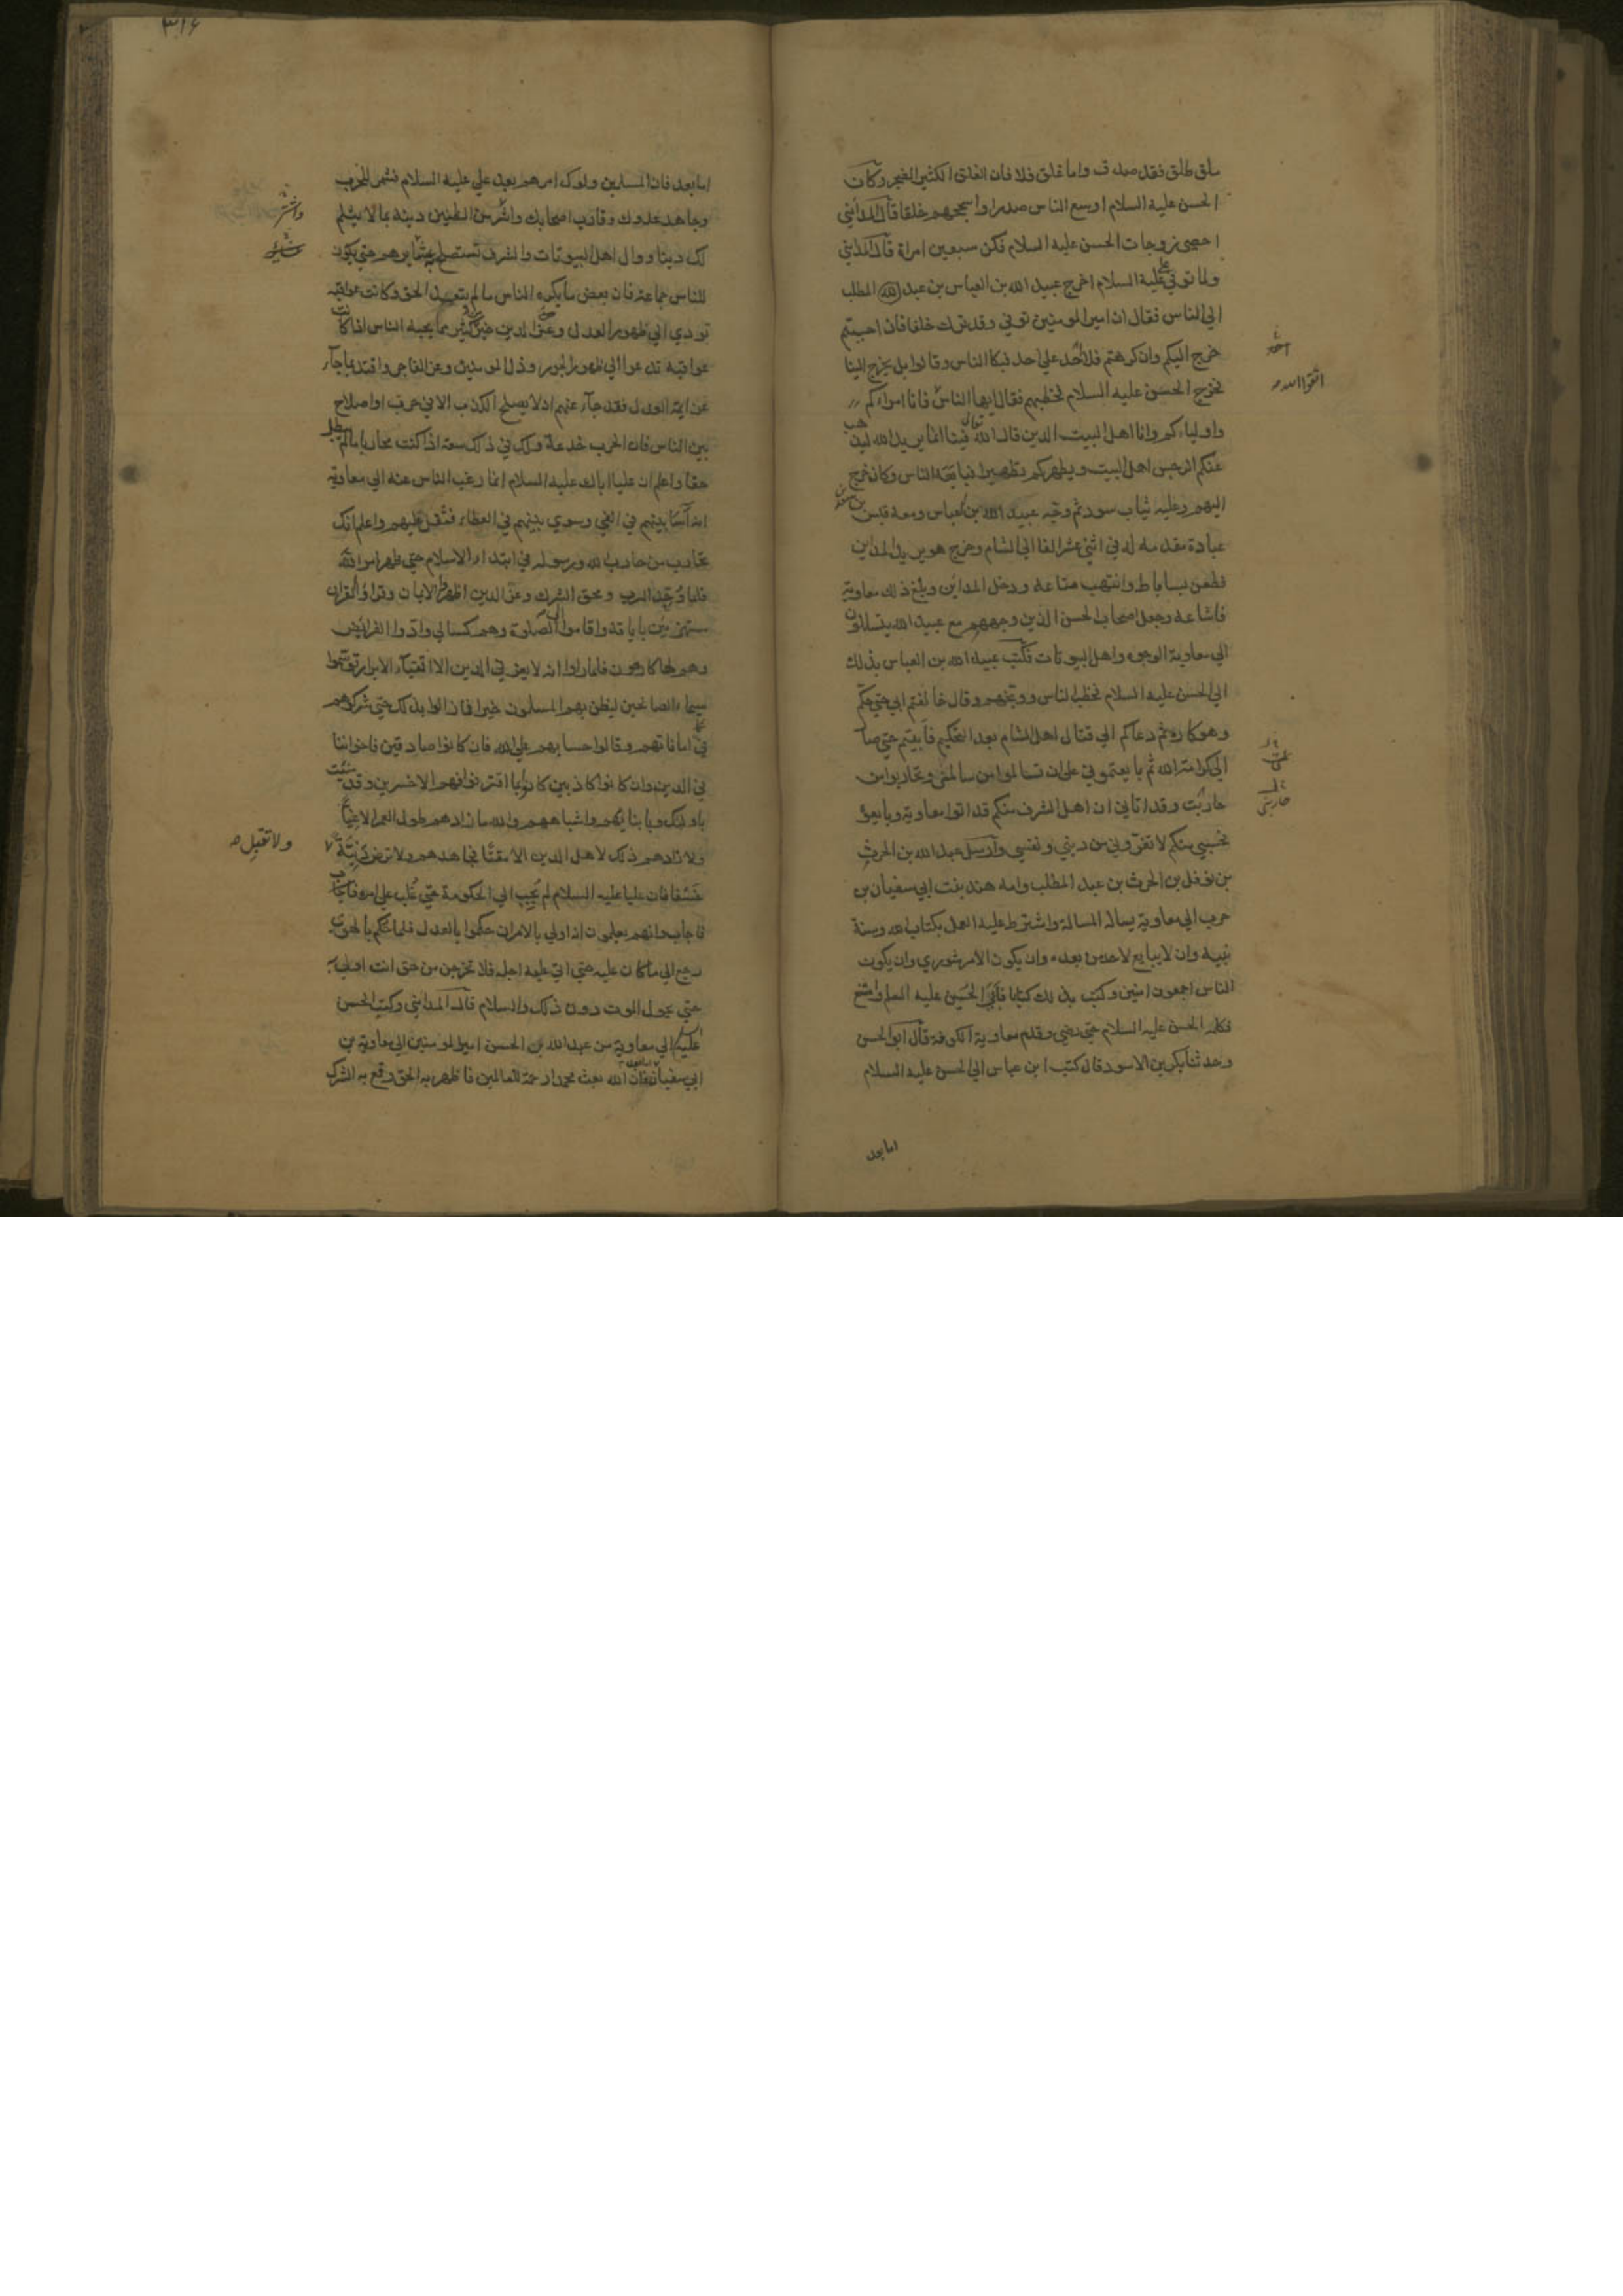 ملق طلق فقد صدق واما غلق فلا فان الغلق الكثير الضجر وكان
الحسن عليه السلام اوسع الناس صدرا واسجحهم خلقا قال المدائني
احصى زوجات الحسن عليه السلام فكن سبعين امراة قال المدائني
ولما توفي علي عليه السلام اخرج عبيد الله بن العباس بن عبد المطلب
الى الناس فقال ان امير المومنين توفي وقد ترك خلفا فان احببتم
خرج اليكم وان كرهتم فلا احد على احد فبكا الناس وقالوا بل يخرج الينا
فخرج الحسن عليه السلام فخطبهم فقال ايها الناس فانا امراءكم
اتقوا الله
واولياءكم وانا اهل البيت الذين قال الله تعالى فينا انما يريد الله ليذهب
عنكم الرجس اهل البيت ويطهركم تطهيرا فبايعه الناس وكان خرج
اليهم وعليه ثياب سود ثم وجه عبيد الله بن العباس ومعه قيس بن سعد
عبادة مقدمه له في اثني عشر الفا الى الشام وخرج هو يريد المداين
فطعن بساباط وانتهب متاعه ودخل المداين وبلغ ذلك معاوية
فاشاعه وجعل اصحاب الحسن الذين وجههم مع عبيد الله يتسللون
الى معاوية الوجوه واهل البيوتات فكتب عبيد الله بن العباس بذلك
الى الحسن عليه السلام فخطب الناس ووبخهم وقال خالفتم ابي حتى حكم
وهو كاره ثم دعاكم الى قتال اهل الشام بعد التحكيم فابيتم حتى صار
الى كرامة الله ثم بايعتموني على ان تسالموا من سالمني وتحاربوا من
حاربت وقد اتاني ان اهل الشرف منكم قد اتوا معاوية وبايعوه
حاربني
فحسبي منكم لا تغروني من ديني ونفسي وارسل عبد الله بن الحرث
بن نوفل بن الحرث بن عبد المطلب وامه هند بنت ابي سفيان بن
حرب الى معاوية يساله المسالمة واشترط عليه العمل بكتاب الله وسنة
نبيه وان لا يبايع لاحد من بعده وان يكون الامر شورى وان يكون
الناس اجمعون امنين وكتب بذلك كتابا فابى الحسين عليه السلم وامتنع
فكلمه الحسن عليه السلام حتى رضي وقدم معاوية الكوفة قال ابو الحسن
وحدثنا ابو بكر بن الاسود قال كتب ابن عباس الى الحسن عليه السلام
اما بعد
٣١٦
اما بعد فان المسلمين ولوك امرهم بعد علي عليه السلام فشمر للحرب
وجاهد عدوك وقارب اصحابك واشتر من الظنين دينه بما لا يثلم
واشتر
لك دينا ووال اهل البيوتات والشرف تستصلح به عشايرهم حتى يكون
للناس جماعة فان بعض ما يكره الناس ما لم يتعد الحق وكانت عواقبه
تودي الى ظهور العدل وعز الدين خير من كثير مما يحبه الناس اذا كانت
عواقبه تدعوا الى ظهور الجور وذل المومنين وعز الفاجر واقتد بما جاء
عن ايمة العدل فقد جاء عنهم انه لا يصلح الكذب الا في حرب او اصلاح
بين الناس فان الحرب خدعة ولك في ذلك سعة اذا كنت محاربا ما لم تبطل
حقا واعلم ان عليا اباك عليه السلام انما رغب الناس عنه الى معاوية
انه آسا بينهم في الفي وسوى بينهم في العطاء فثقل عليهم واعلم انك
تحارب من حارب الله ورسوله في ابتداء الاسلام حتى ظهر امر الله
فلما وحد الرب ومحق الشرك وعز الدين اظهروا الايمان وقراوا القران
مستهزئين باياته وقاموا الى الصلوة وهم كسالى وادوا الفرائض
وهم لها كارهون فلما راوا انه لا يعز في الدين الا الاتقياء الابرار توسموا
سيماء الصالحين ليظن بهم المسلمون خيرا فما زالوا بذلك حتى شركوهم
في اماناتهم وقالوا حسابهم على الله فان كانوا صادقين فاخواننا
في الدين وان كانوا كاذبين كانوا بما اقترفوا هم الاخسرين وقد منيت
باولئك وبابنائهم واشباههم والله ما زادهم طول العمر الا غيا
ولا زادهم ذلك لاهل الدين الا مقتا فجاهدهم ولا ترض دنية
ولا تقبل
خسفا فان عليا عليه السلام لم يجب الى الحكومة حتى غلب على امره فاجاب
وانهم يعلمون انه اولى بالامر ان حكموا بالعدل فلما حكموا بالهوى
رجع الى ما كان عليه حتى اتى عليه اجله فلا تخرجن من حق انت اولى به
حتى يحول الموت دون ذلك والسلام قال المدائني وكتب الحسن
عليه الى معاوية من عبد الله بن الحسن امير المومنين الى معاوية بن
ابي سفيان اما بعد فان الله بعث محمدا رحمة للعالمين فاظهر به الحق وقمع به الشرك